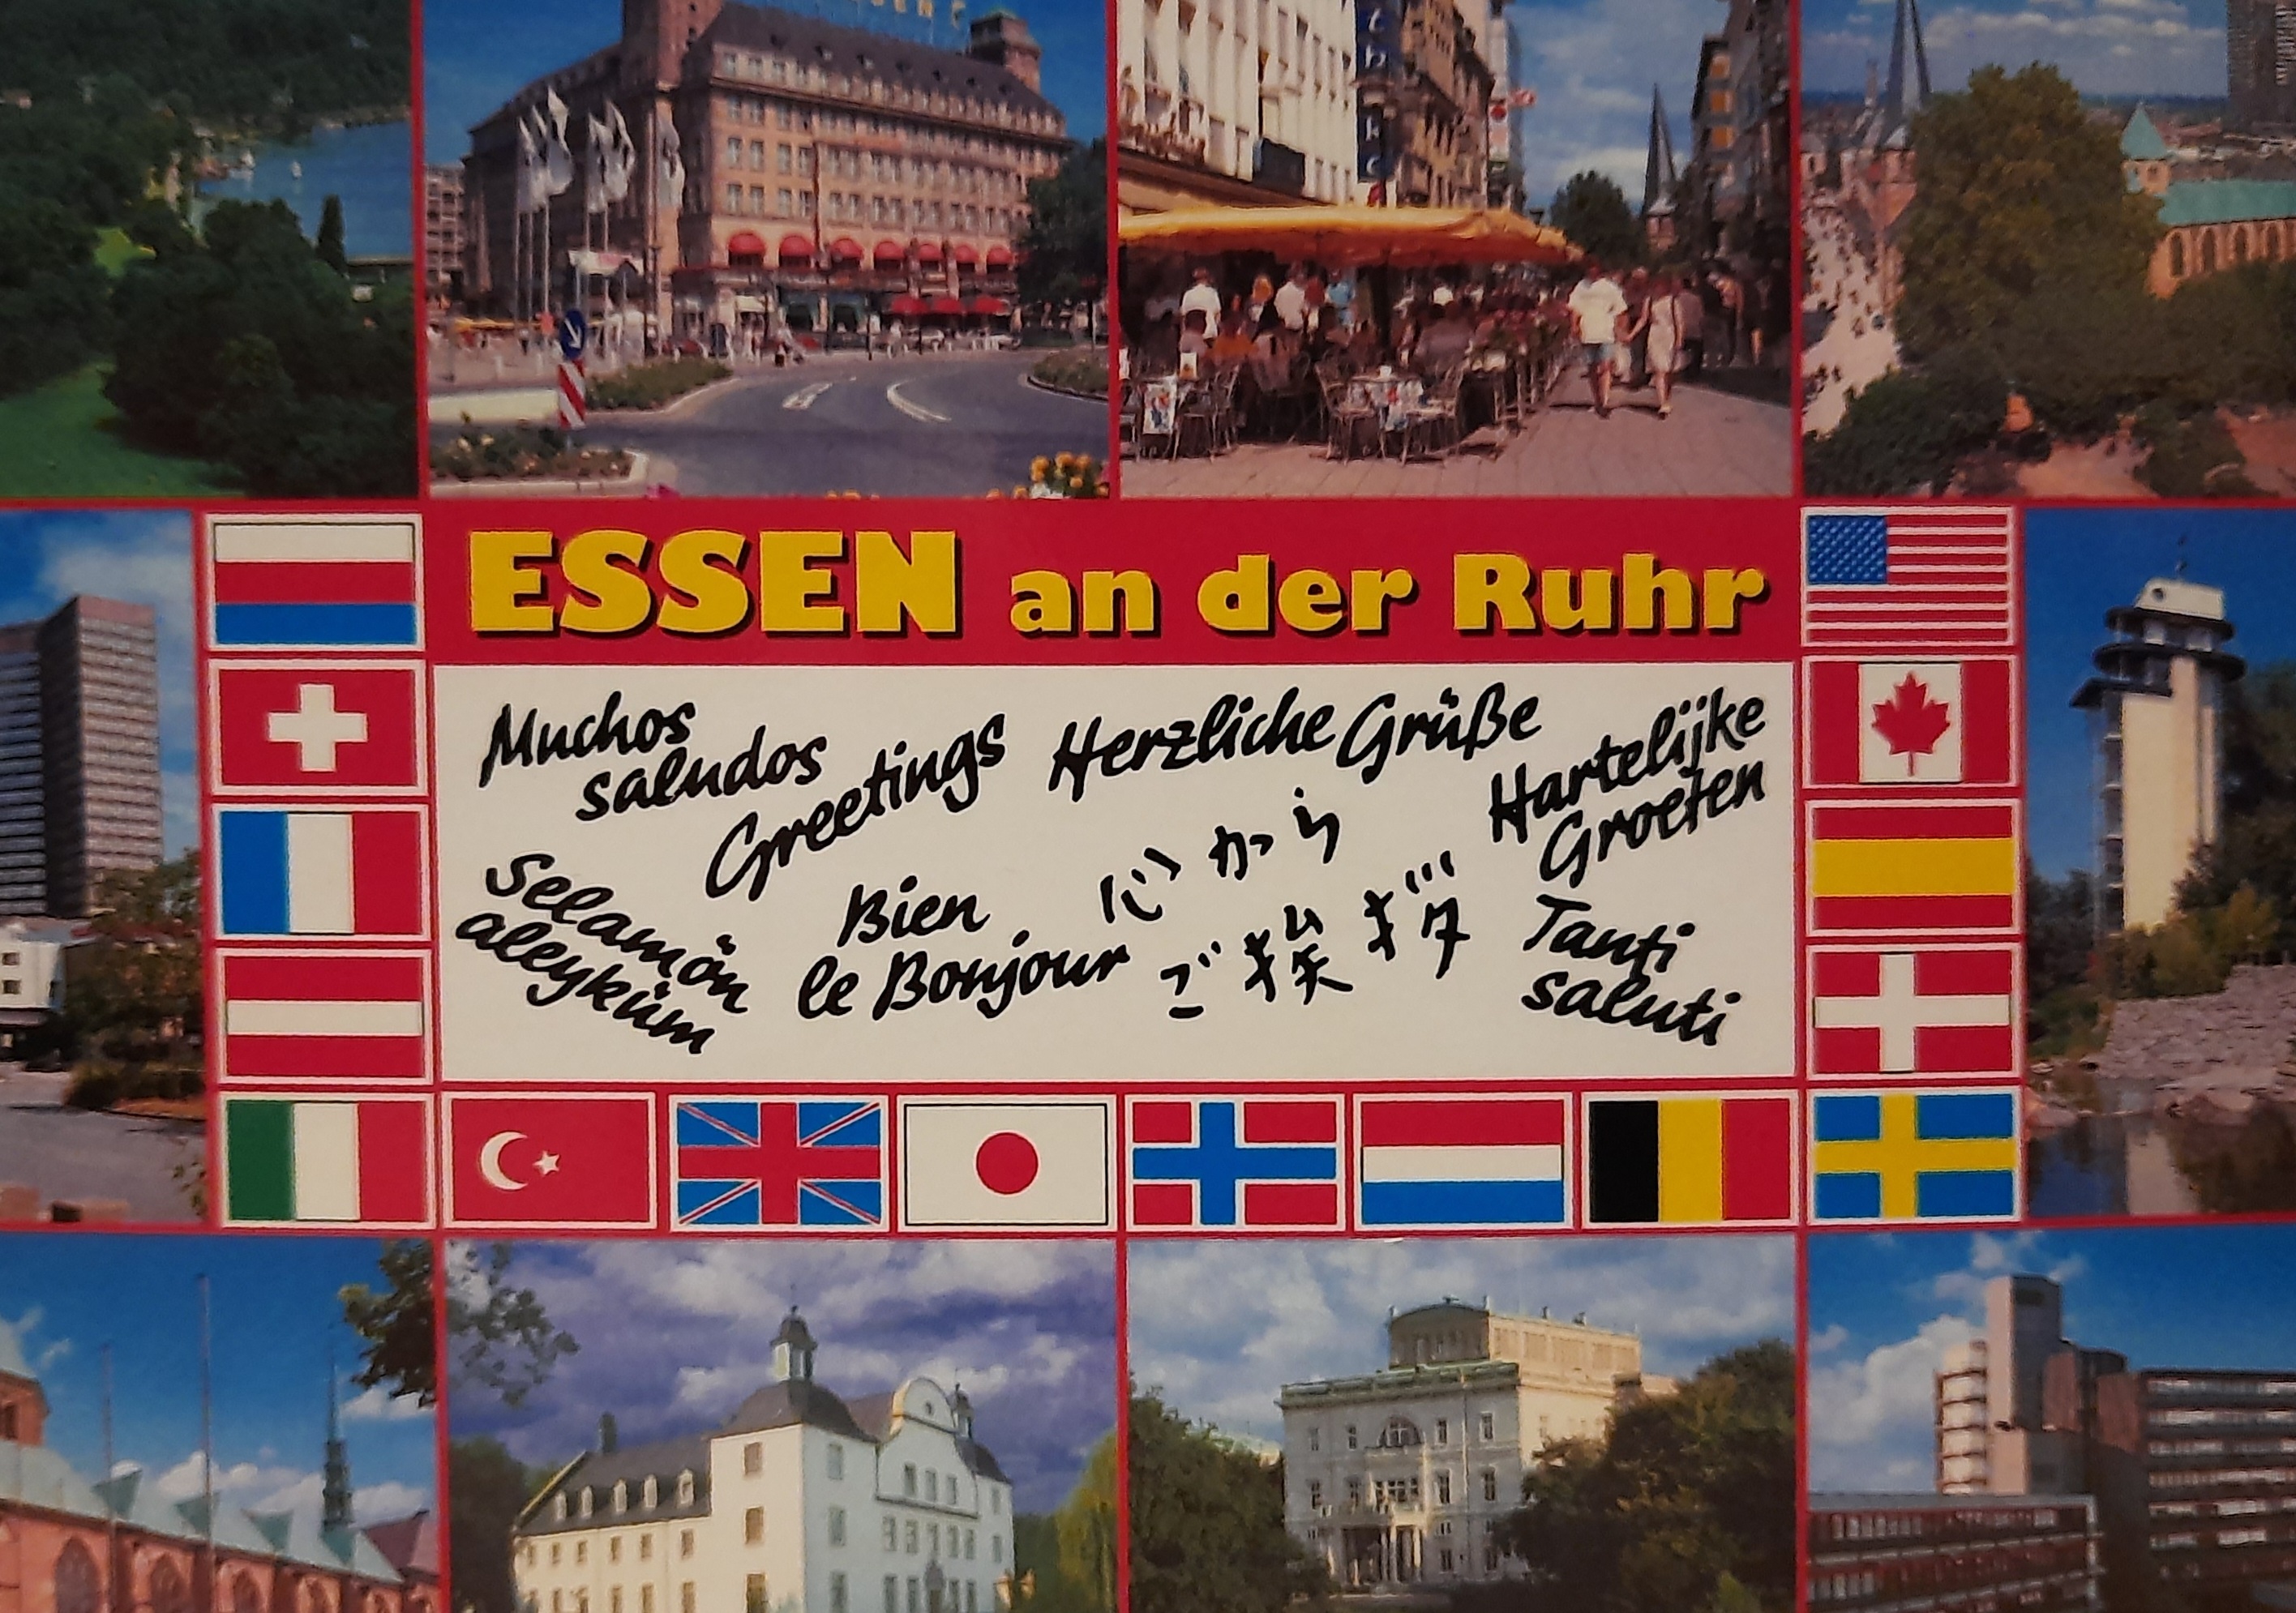 ESSEN an der Ruhr
Muchos
saludos
Greetings
Herzliche Grüße
Hartelijke
Groeten
Selamön
aleyküm
Bien
le Bonjour
心から
ご挨拶
Tanti
saluti